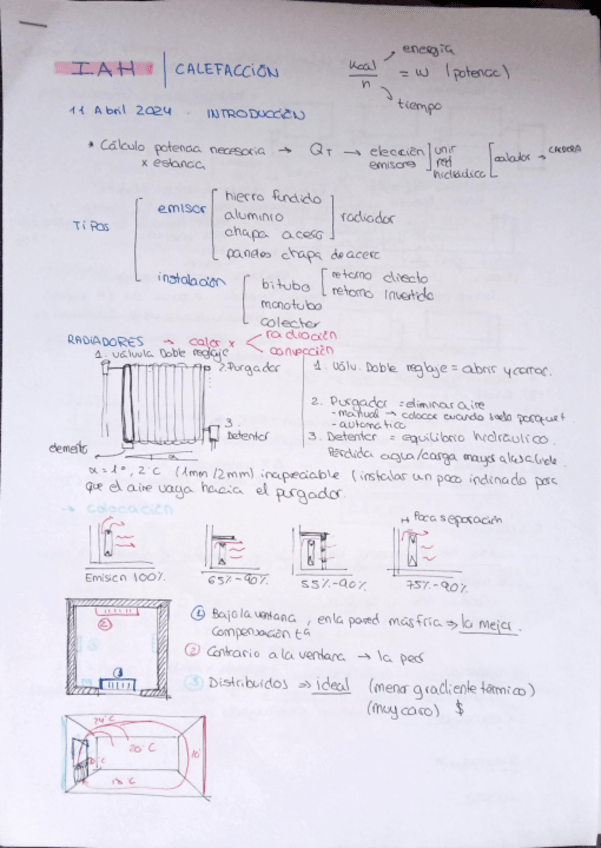 IAH | CALEFACCIÓN
Kcal/h = W (potenc)
energía
tiempo
11 Abril 2024 · INTRODUCCIÓN
* Cálculo potencia necesaria → QT → elección emisores ] unir red hidráulica [ calculador → CALDERA
x estancia
TIPOS
emisor
hierro fundido
aluminio
chapa acero
radiador
paneles chapa de acero
instalación
bitubo
retorno directo
retorno invertido
monotubo
colector
RADIADORES → calor x
radiación
convección
1. Válvula Doble reglaje
2. Purgador
3. Detentor
elemento
α
1. Válv. Doble reglaje = abrir y cerrar.
2. Purgador = eliminar aire
- manual → colocar cuando
- automático
3. Detentor = equilibrio hidráulico.
Pérdida agua/carga mayor a la salida.
α = 1°, 2°C (1mm/2mm) inapreciable (instalar un poco inclinado para
que el aire vaya hacia el purgador.
→ Colocación
Poca separación
Emisión 100%
65%-90%
55%-90%
75%-90%
① Bajo la ventana, en la pared más fría ⇒ la mejor.
Compensación tª
② Contrario a la ventana → la peor
③ Distribuidos ⇒ ideal (menor gradiente térmico)
(muy caro) $
②
①
24°C
20°C
18°C